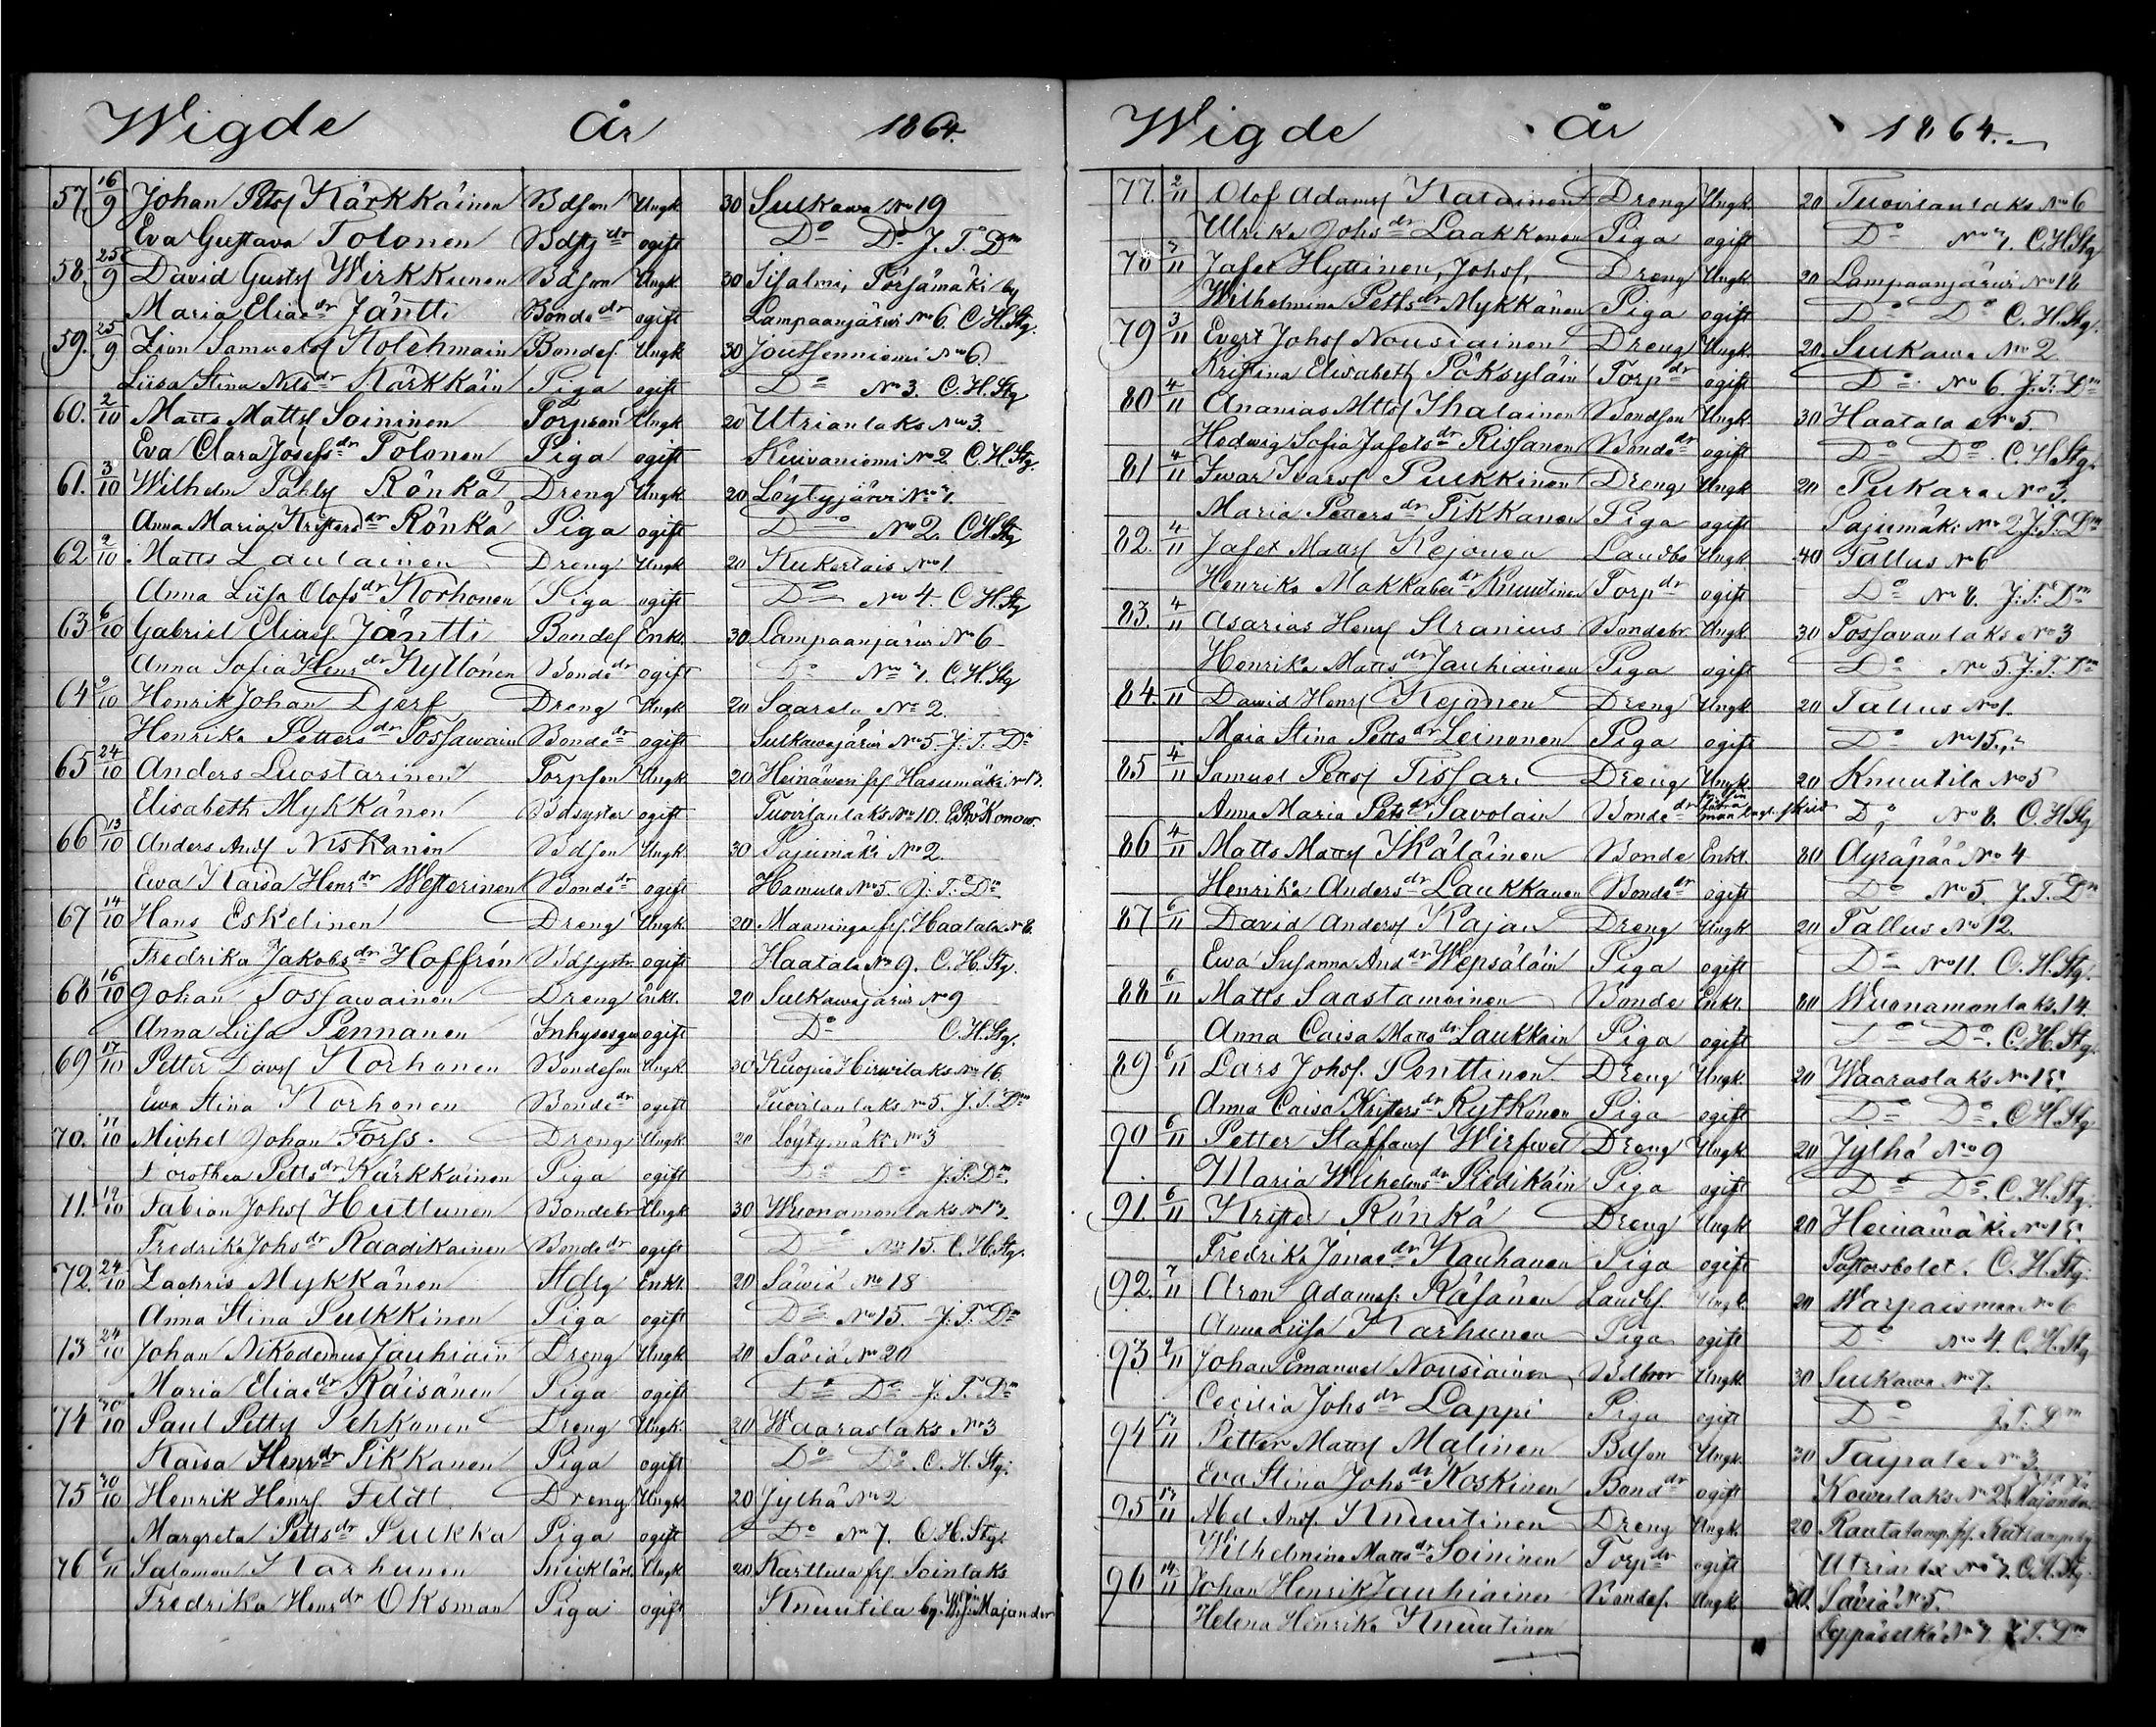 Wigde år 1864.
57. 16/9 Johan Petsf Kärkkäinen Bdson Ungk. 30 Sulkawa No 19
Eva Gustava Tolonen Bdstjdr ogift Do Do J. T. Dm
58. 25/9 David Gustsf Wirkkunen Bdson Ungk. 30 Iisalmi, Pörsämäki by
Maria Eliaedr Jäntti Bondedr ogift Lampaanjärwi No 6. C. H. Stg.
59. 25/9 Zion Samuelsf Kolehmain Bondes. Ungk. 30 Joutsenniemi No 6
Liisa Stina Nilsdr Kärkkäin Piga ogift Do No 3. C. H. Stg
60. 2/10 Matts Mattsf Soininen Torpson Ungk 20 Utrianlaks No 3
Eva Clara Josefsdr Tolonen Piga ogift Kuivaniemi No 2 C. H. Stg.
61. 3/10 Wilhelm Påhlsf Rönkä Dreng Ungk. 20 Löytyjärvi No 1.
Anna Maria Kristersdr Rönkä Piga ogift Do No 2. C H. Stg
62 2/10 Matts Laulainen Dreng Ungk 20 Kukertais No 1
Anna Liisa Olofsdr Korhonen Piga ogift Do No 4. C H. Stg
63 6/10 Gabriel Eliasf Jäntti Bondes Enkl. 30 Lampaanjärwi No 6
Anna Sofia Hensdr Kyllönen Bondedr ogift Do No 1. C H. Stg
64 9/10 Henrik Johan Djerf Dreng Ungk 20 Saarela No 2.
Henrika Pettersdr Tossawain Bondedr ogift Sulkawajärwi No 5. J. T. Dm
65 24/10 Anders Luostarinen Torpson Ungk 20 Heinäwesi frs. Hasumäki No 13.
Elisabeth Mykkänen Bdsyster ogift Tuovilanlaks No 10. Konow.
66 13/10 Anders Andsf Niskanen Bdson Ungk. 30 Pajumäki No 2.
Ewa Kaisa Henrdr Westerinen Bondedr ogift Hamula No 5. J. T. Dm
67 14/10 Hans Eskelinen Dreng Ungk. 20 Maaninga frs. Haatala No 8.
Fredrika Jakobsdr Hoffrén Bdsystr. ogift Haatala No 9. C. H. Stg.
68 16/10 Johan Tossawainen Dreng Enkl. 20 Sulkawajärwi No 9
Anna Liisa Pennanen Inhysesqw ogift Do C. H. Stg.
69 17/10 Petter Davsf Korhonen Bondeson Ungk. 30 Kuopio Hirwilaks No 16.
Ewa Stina Korhonen Bondedr ogift Tuovilanlaks No 5. J. T. Dm
70. 17/10 Michel Johan Forss. Dreng Ungk. 20 Löytymäki No 3
Dorothea Pettsdr Kärkkäinen Piga ogift Do Do J. T. Dm.
71. 19/10 Fabian Johsf Huttunen Bondebr Ungk 30 Wuonamonlaks No 13.
Fredrika Johsdr Raadikainen Bondedr ogift Do No 15. C. H. Stg.
72. 24/10 Zachris Mykkänen Enkl. 20 Säwiä No 18
Anna Stina Pulkkinen Piga ogift Do No 15. J. T. Dm
73 24/10 Johan Nikodemus Jauhiain Dreng Ungk 20 Säviä No 20
Maria Eliaedr Räisänen Piga ogift Do Do J. T. Dm
74 30/10 Paul Pettsf Pehkonen Dreng Ungk. 20 Waaraslaks No 3
Kaisa Henrdr Pikkanen Piga ogift Do Do. C. H. Stg.
75 30/10 Henrik Henrsf. Feldt. Dreng Ungk. 20 Jylhä No 2
Margreta Pettsdr Pulkka Piga ogift Do No 7. C. H. Stg.
76 6/11 Salomon Karhunen Snicklärl. Ungk. 20 Karttula frs Soinlaks
Fredrika Henrdr Oksman Piga ogift Knuutila by. Majander
Wigde år 1864.
77. 2/11 Olof Adamsf Katainen Dreng Ungk. 20 Tuovilanlaks No 6
Ulrika Johsdr Laakkonen Piga ogift Do No 1. C. H. Stg
78 3/11 Jafet Hyttinen, Johsf, Dreng Ungk 20 Lampaanjärwi No 16
Wilhelmina Pettsdr Mykkänen Piga ogift Do Do C. H. Stg.
79 3/11 Evert Johsf Nousiainen Dreng Ungk. 20. Sulkawa No 2
Kristina Elisabeth Pöksyläin Torpdr ogift Do No 6. J. T. Dm
80 4/11 Ananias Mttsf Ihalainen Bondson Ungk. 30 Haatala No 5.
Hedwig Sofia Jafetsdr Rissanen Bondedr ogift Do Do. C. H. Stg.
81 4/11 Iwar Ivarsf Pulkkinen Dreng Ungk 20 Pukara No 3.
Maria Pettersdr Pikkanen Piga ogift Pajumäki No 2 J. T. Dm
82. 4/11 Jafet Mattsf Kejonen Landbo Ungk 40 Tallus No 6
Henrika Makkabeidr Knuutinen Torpdr ogift Do No 8. J. T. Dm
83. 4/11 Asarias Henrsf Stranius Bondebr. Ungk 30 Tossavanlaks No 3
Henrika Mattsdr Jauhiainen Piga ogift Do No 5. J. T. Dm
84. 4/11 David Henrsf Kejonen Dreng Ungk 20 Tallus No 1.
Maia Stina Pettsdr Leinonen Piga ogift Do No 15.
85 4/11 Samuel Pettsf Tissari Dreng Ungk. 20 Knuutila No 5
Anna Maria Petsdr Savolain Bondedr Do No 8. C. H. Stg
86 4/11 Matts Mattsf Ikäläinen Bonde Enkl. 80 Äyräpää No 4
Henrika Andersdr Laukkanen Bondedr Do No 5. J. T. Dm
87 6/11 David Andersf Kajan Dreng Ungk 20 Tallus No 12.
Ewa Susanna Anddr Wepsäläin Piga ogift Do No 11. C. H. Stg.
88 6/11 Matts Saastamoinen Bonde Enkl. 80 Wuonamonlaks. 14.
Anna Caisa Mattsdr Laukkain Piga ogift Do Do. C. H. Stg.
89 6/11 Lars Johsf. Penttinen. Dreng Ungk. 20 Waaraslaks No 15.
Anna Caisa Kristersdr Rytkönen Piga ogift Do Do. C. H. Stg.
90 6/11 Petter Staffansf Wirfwel Dreng Ungk. 20 Jylhä No 9
Maria Wilhelmsdr Piedikäin Piga ogift Do Do. C. H. Stg.
91. 6/11 Krister Rönkä Dreng Ungk 20 Heinämäki No 15.
Fredrika Jonaedr Kauhanen Piga ogift Pastorsbolet. C. H. Stg.
92. 7/11 Aron Adamsf. Räsänen Landbs. Ungk. 20 Warpaismaa No 6
Anna Liisa Karhunen Piga ogift Do No 4. C. H. Stg
93. 9/11 Johan Emanuel Nousiainen Bdbror Ungk. 30 Sulkawa No 7.
Cecilia Johsdr Lappi Piga ogift Do J. T. Dm
94 13/11 Petter Mattsf Malinen Bdson Ungk. 30 Taipale No 3
Eva Stina Johsdr Koskinen Bonddr ogift Kowerlaks No 2. Majander
95 13/11 Abel Andsf. Knuutinen Dreng Ungk. 20 Rautalamp. frs.
Wilhelmina Mattsdr Soininen Torpdr ogift Utrianlax No 7. C. H. Stg.
96 14/11 Johan Henrik Jauhiainen Bondes. Ungk. 30. Säviä No 5.
Helena Henrika Knuutinen Leppäselkä No 7 J. T. Dm